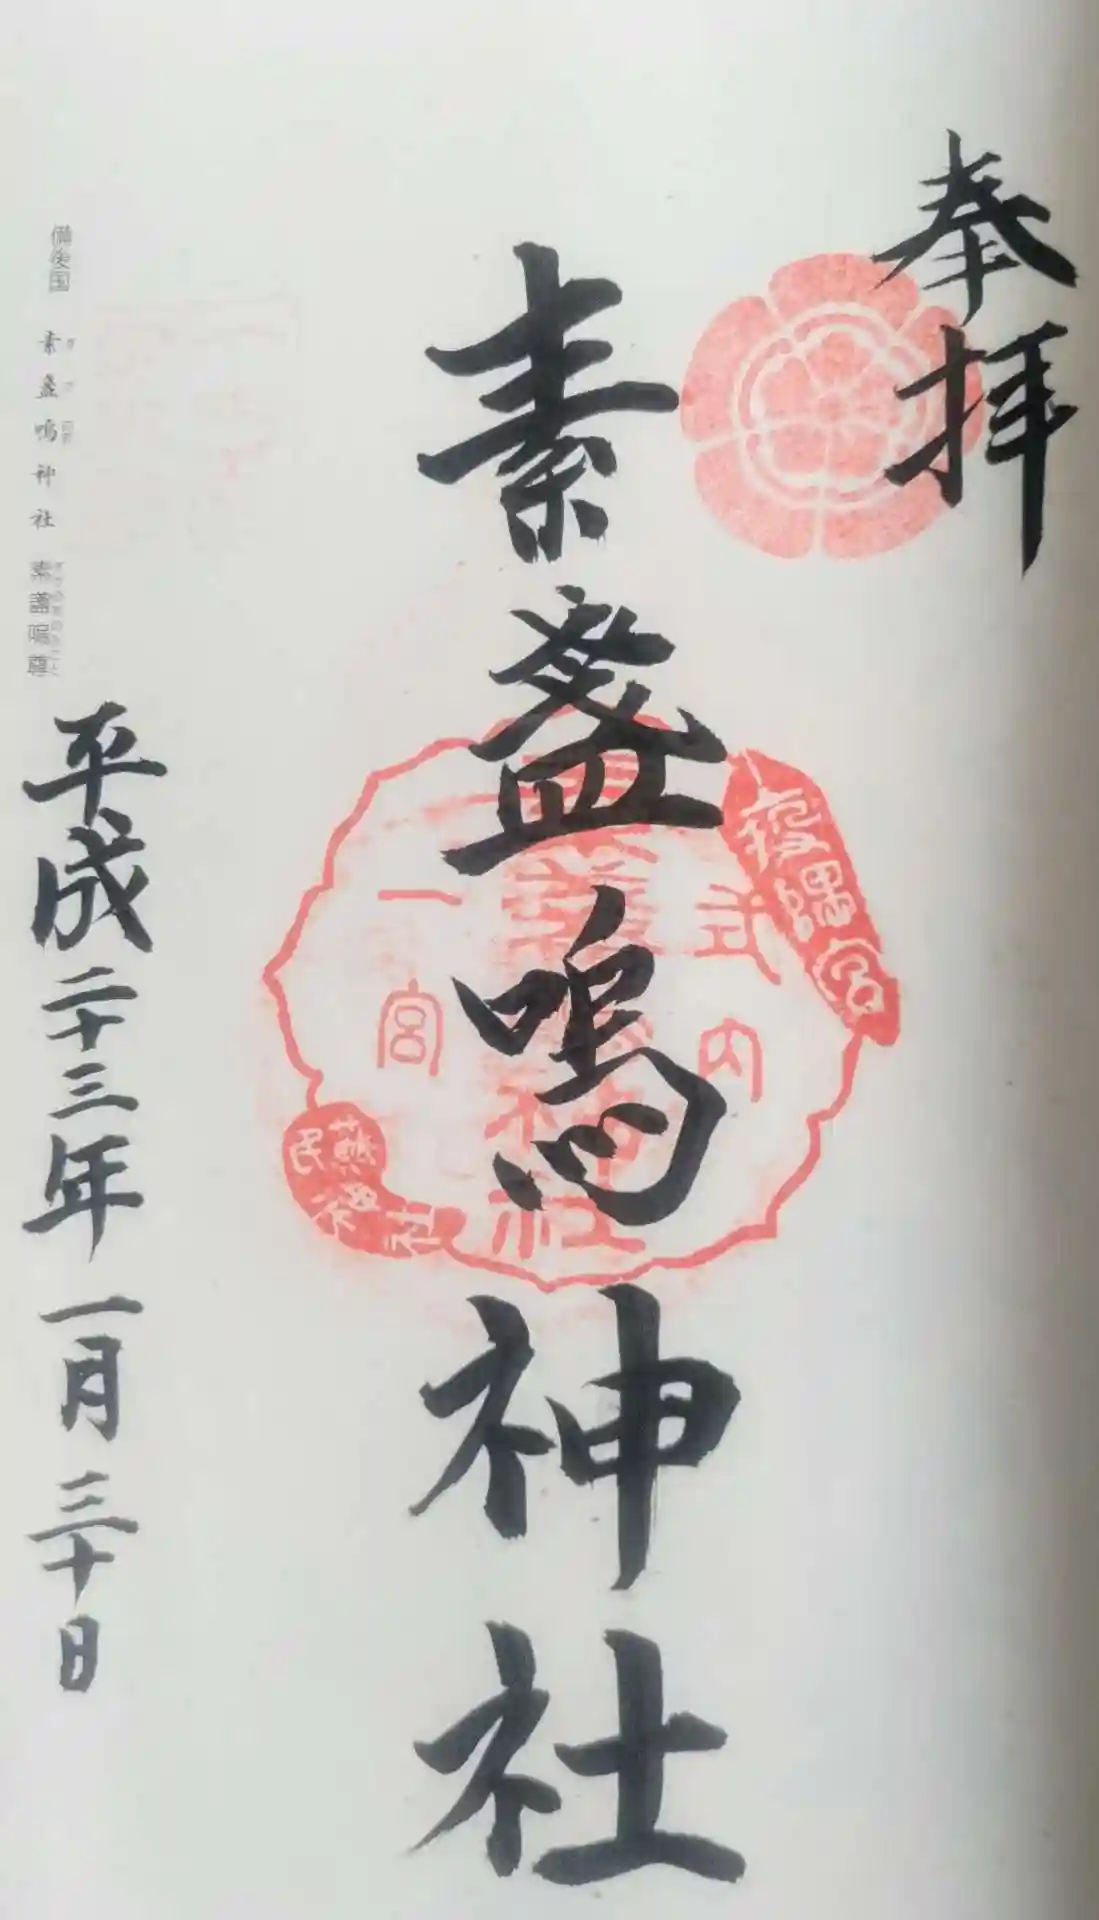 奉拝
素盞嗚神社
式内
一宮
蘇民神社
平成二十三年一月三十日
備後国 素盞嗚神社 素盞嗚尊